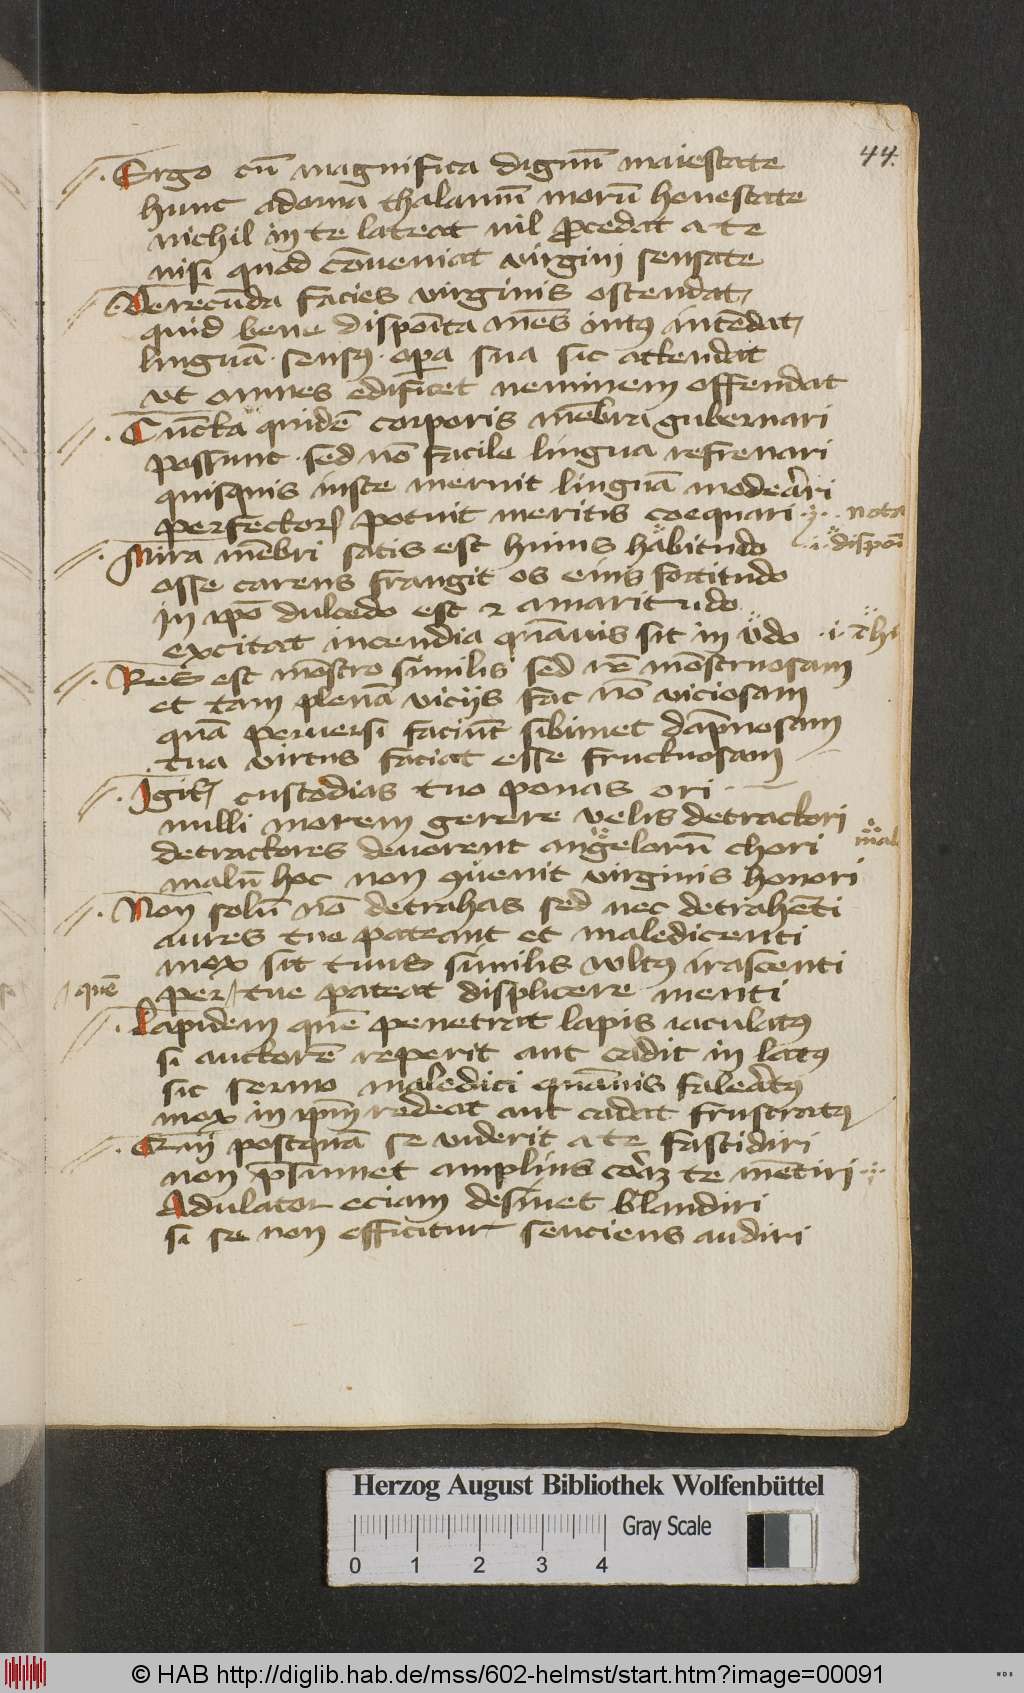 44.
Ergo cū magnifica dignū maiestate
hunc adorna thalamū morū honestate
nichil in te lateat nil ꝓcedat a te
nisi quod cōveniat virgini sensate
Verecūda facies virginis ostendat
quid bene dispoīta mēs intꝰ intēdat
linguā · sensꝰ · oꝑa sua sic attendat
vt omnes edificet neminem offendat
Cūcta quidē corporis mēbra gubernari
possunt · sed nō facile lingua refrenari
quisquis iuste meruit linguā
potuit meritis coequari · nota
Mira mēbri satis est huius habitudo
osse carens frangit os eius fortitudo
in ip̄o dulcedo est ⁊ amaritudo
excitat incendia quāuis sit in vdo
Res est mōstro similis sed rē mōstruosam
et tam plenā viciis fac nō viciosam
quā peruersi faciūt sibimet dāpnosam
tua virtus faciat esse fructuosam
Igit custodias tuo ponas ori
nulli morem gerere velis detractori
detractores deuorent angelorū chori
malū hoc non virginis honori
Non solū nō detrahas sed nec detrahēti
aures tue pateant et maledicenti
mox sit tuus similis vultꝰ irascenti
quē
per tue pateat displicere menti
Lapidem quē penetrat lapis iaculatꝰ
si auctorē reperit aut cadit in latꝰ
sic sermo maledici quāuis
mox in ip̄m redeat aut cadat frustratꝰ
postquā se viderit a te fastidiri
non p̄sumet amplius te mētiri
Adulator eciam desinet blandiri
si se non efficitur senciens audiri
Herzog August Bibliothek Wolfenbüttel
Gray Scale
0 1 2 3 4
© HAB http://diglib.hab.de/mss/602-helmst/start.htm?image=00091